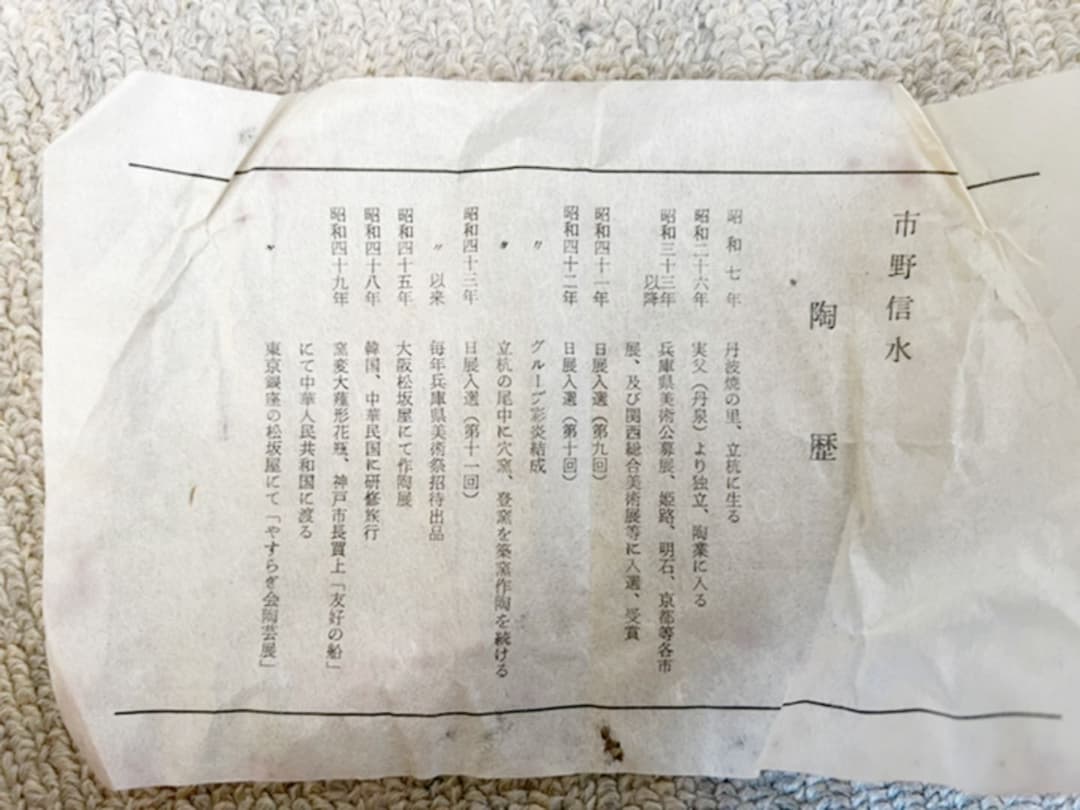 市野信水
陶歴
昭和七年 丹波焼の里、立杭に生る
昭和二十六年 実父（丹泉）より独立、陶業に入る
昭和三十三年以降 兵庫県美術公募展、姫路、明石、京都等各市
展、及び関西総合美術展等に入選、受賞
昭和四十一年 日展入選（第九回）
昭和四十二年 日展入選（第十回）
〃 グループ彩炎結成
〃 立杭の尾中に穴窯、登窯を築窯作陶を続ける
昭和四十三年 日展入選（第十一回）
〃 以来 毎年兵庫県美術祭招待出品
昭和四十五年 大阪松坂屋にて作陶展
昭和四十八年 韓国、中華民国に研修旅行
昭和四十九年 窯変大薩形花瓶、神戸市長買上「友好の船」
にて中華人民共和国に渡る
〃 東京銀座の松坂屋にて「やすらぎ会陶芸展」